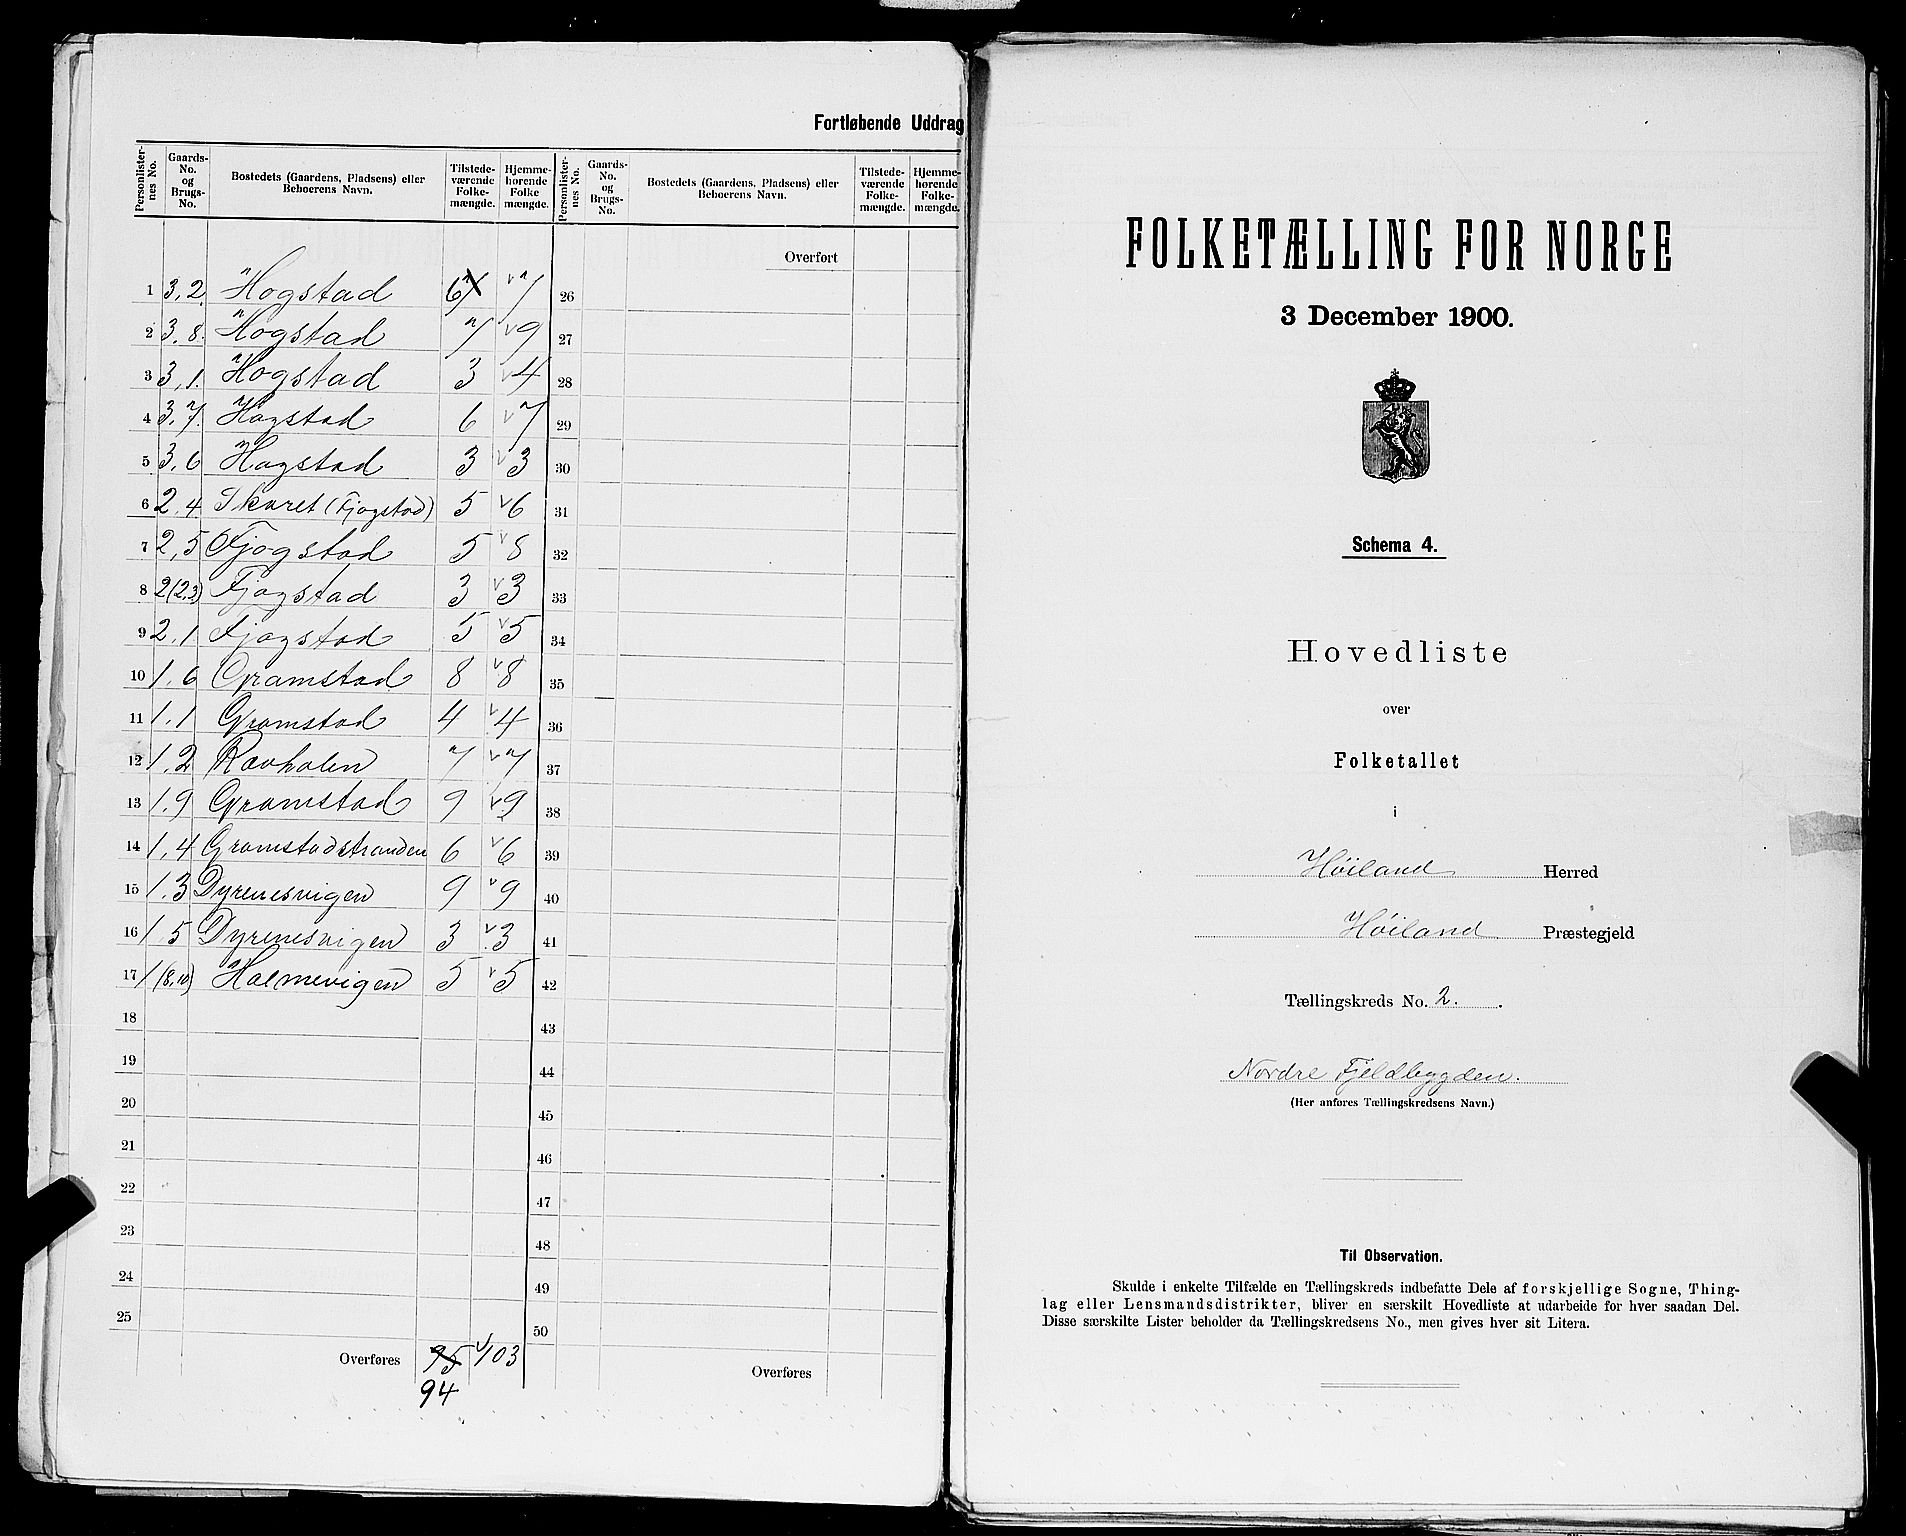 Fortløbende Uddrag
Personlister-nes No. | Gaards-No. og Brugs-No. | Bostedets (Gaardens, Pladsens) eller Beboerens Navn. | Tilstede-værende Folke-mængde. | Hjemme-hørende Folke mængde. | Personlister-nes No. | Gaards-No. og Brugs-No. | Bostedets (Gaardens, Pladsens) eller Beboerens Navn. | Tilstede-værende Folke-mængde. | Hjemme-hørende Folke-mængde.
Overført
1 3,2 Hogstad 6 7 7 26
2 3,8. Hogstad 7 9 27
3 3,1. Hogstad 3 4 28
4 3,7. Hogstad 6 7 29
5 3,6 Hogstad 3 3 30
6 2,4 Skaret (Fjogstad) 5 6 31
7 2,5 Fjogstad 5 8 32
8 2(2,3) Fjogstad 3 3 33
9 2,1 Fjogstad 5 5 34
10 1,6 Gramstad 8 8 35
11 1,1 Gramstad 4 4 36
12 1,2 Ravholen 7 7 37
13 1,9 Gramstad 9 9 38
14 1,4 Gramstadstranden 6 6 39
15 1,3 Dyrenesvigen 9 9 40
16 1,5 Dyrenesvigen 3 3 41
17 1(8,10) Holmevigen 5 5 42
18 43
19 44
20 45
21 46
22 47
23 48
24 49
25 50
Overføres 95 103 Overføres
94
FOLKETÆLLING FOR NORGE
3 December 1900.
Schema 4.
Hovedliste
over
Folketallet
i
Høiland Herred
Høiland Præstegjeld
Tællingskreds No. 2.
Nordre Fjeldbygden.
(Her anføres Tællingskredsens Navn.)
Til Observation.
Skulde i enkelte Tilfælde en Tællingskreds indbefatte Dele af forskjellige Sogne, Thing-
lag eller Lensmandsdistrikter, bliver en særskilt Hovedliste at udarbeide for hver saadan Del.
Disse særskilte Lister beholder da Tællingskredsens No., men gives hver sit Litera.